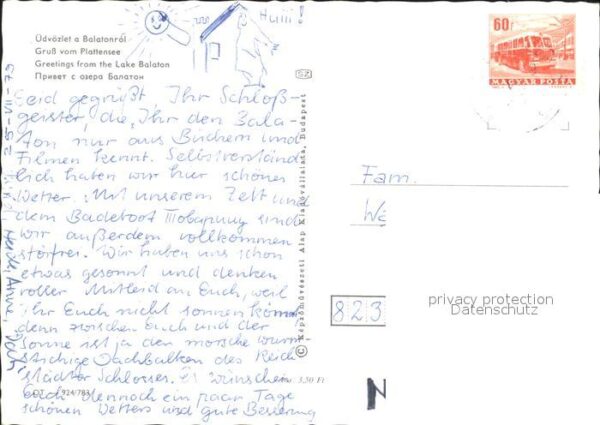 Hiiii!
Üdvözlet a Balatonról
Gruß vom Plattensee
Greetings from the Lake Balaton
Привет с озера Балатон
Seid gegrüßt, Ihr Schloß-
geister, die Ihr den Bala-
ton nur aus Büchern und
Filmen kennt. Selbstverständ
lich haben wir hier schönes
Wetter. Mit unserem Zelt und
dem Badeboot Товарищ sind
wir außerdem vollkommen
störfrei. Wir haben uns schon
etwas gesonnt und denken
voller Mitleid an Euch, weil
Ihr Euch nicht sonnen könnt
denn zwischen Euch und der
Sonne ist ja den morsche wurm
stichige Dachbalken des Reich
städter Schlosses. Es wünschen
Euch dennoch ein paar Tage
schönen Wetters und gute Besserung
3,50 Ft
924/783
© Képzőművészeti Alap Kiadóvállalata, Budapest
60f
MAGYAR POSTA
Fam.
We
823
privacy protection
Datenschutz
N